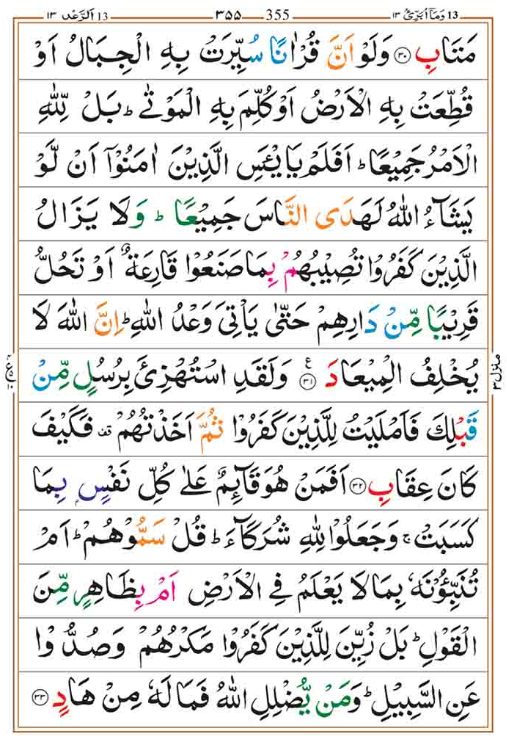 13 وَمَآ اُبَرِّئُ ١٣ 355 ٣٥٥ 13 اَلرَّعْد ١٣
مَتَابِ ﴿۳۰﴾ وَلَوْ اَنَّ قُرْاٰنًا سُيِّرَتْ بِهِ الْجِبَالُ اَوْ
قُطِّعَتْ بِهِ الْاَرْضُ اَوْ كُلِّمَ بِهِ الْمَوْتٰى ؕ بَلْ لِّلّٰهِ
الْاَمْرُ جَمِيْعًا ؕ اَفَلَمْ يَايْـَٔسِ الَّذِيْنَ اٰمَنُوْۤا اَنْ لَّوْ
يَشَآءُ اللّٰهُ لَهَدَى النَّاسَ جَمِيْعًا ؕ وَلَا يَزَالُ
الَّذِيْنَ كَفَرُوْا تُصِيْبُهُمْ بِمَا صَنَعُوْا قَارِعَةٌ اَوْ تَحُلُّ
قَرِيْبًا مِّنْ دَارِهِمْ حَتّٰى يَاْتِىَ وَعْدُ اللّٰهِ ؕ اِنَّ اللّٰهَ لَا
يُخْلِفُ الْمِيْعَادَ ﴿۳۱﴾ ع وَلَقَدِ اسْتُهْزِئَ بِرُسُلٍ مِّنْ
قَبْلِكَ فَاَمْلَيْتُ لِلَّذِيْنَ كَفَرُوْا ثُمَّ اَخَذْتُهُمْ قف فَكَيْفَ
كَانَ عِقَابِ ﴿۳۲﴾ اَفَمَنْ هُوَ قَآئِمٌ عَلٰى كُلِّ نَفْسٍ ۢ بِمَا
كَسَبَتْ ۚ وَجَعَلُوْا لِلّٰهِ شُرَكَآءَ ؕ قُلْ سَمُّوْهُمْ ؕ اَمْ
تُنَبِّـُٔوْنَهٗ بِمَا لَا يَعْلَمُ فِى الْاَرْضِ اَمْ بِظَاهِرٍ مِّنَ
الْقَوْلِ ؕ بَلْ زُيِّنَ لِلَّذِيْنَ كَفَرُوْا مَكْرُهُمْ وَصُدُّوْا
عَنِ السَّبِيْلِ ؕ وَمَنْ يُّضْلِلِ اللّٰهُ فَمَا لَهٗ مِنْ هَادٍ ﴿۳۳﴾
منزل ٣